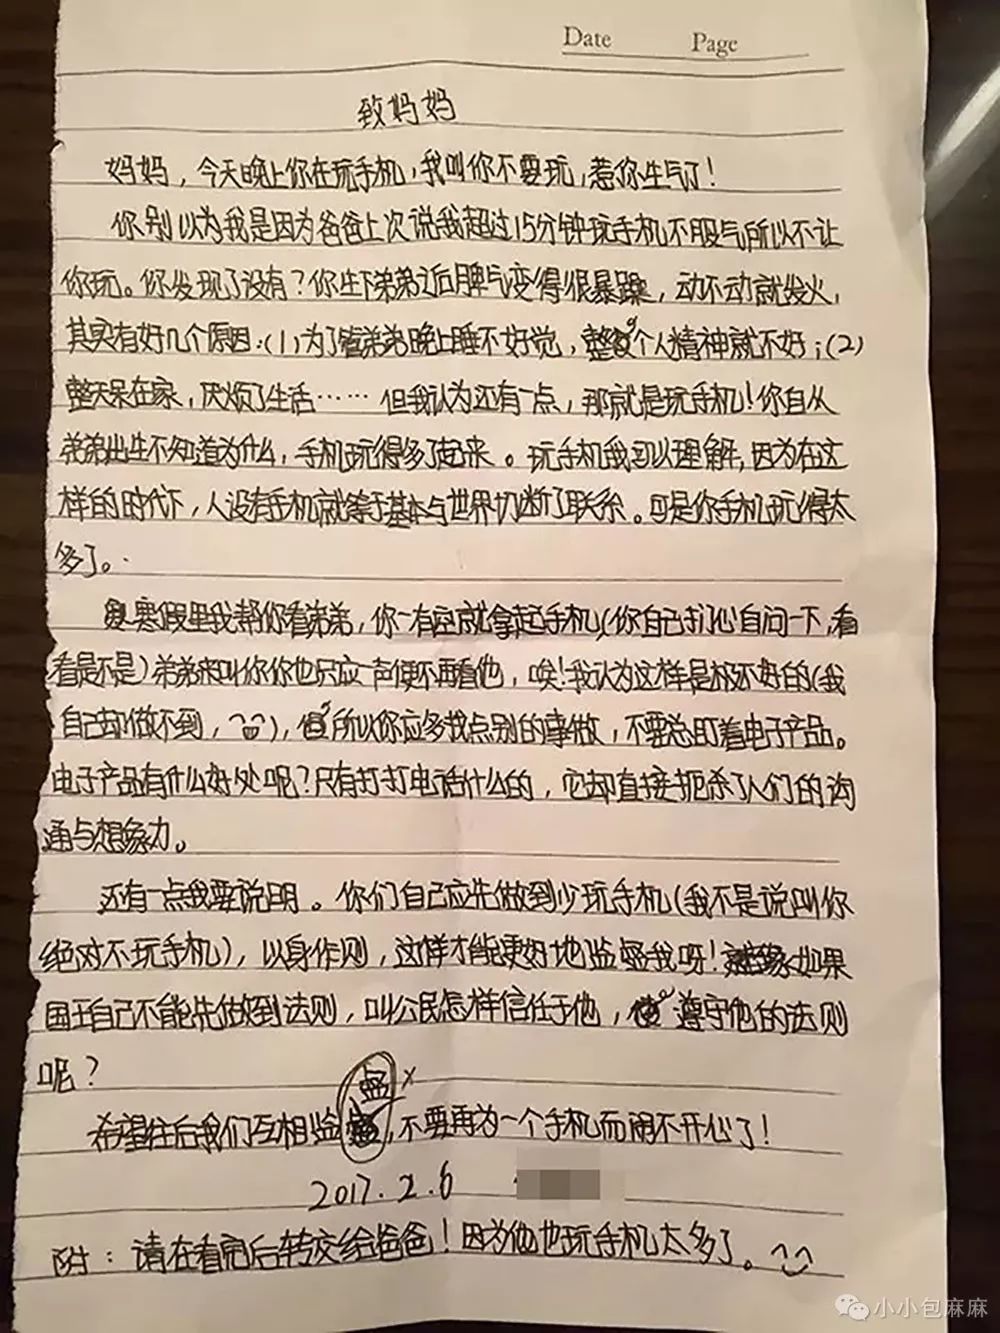 Date Page
致妈妈
妈妈，今天晚上你在玩手机，我叫你不要玩，惹你生气了！
你别以为我是因为爸爸上次说我超过15分钟玩手机不服气所以不让
你玩。你发现了没有？你生下弟弟之后脾气变得很暴躁，动不动就发火，
其实有好几个原因：(1)为了管弟弟晚上睡不好觉，整个人精神就不好；(2)
整天呆在家，厌烦了生活……但我认为还有一点，那就是玩手机！你自从
弟弟出生不知道为什么，手机玩得多了起来。玩手机我可以理解，因为在这
样的时代下，人没有手机就等于基本与世界切断了联系。可是你手机玩得太
多了。
寒假里我帮你看弟弟，你一有空就拿起手机(你自己扪心自问一下，看
看是不是)弟弟来叫你你也只应一声便不再看他，唉！我认为这样是极不好的(我
自己却做不到，)，所以你应多找点别的事做，不要总盯着电子产品。
电子产品有什么好处呢？只有打打电话什么的，它却直接扼杀了人们的沟
通与想象力。
还有一点我要说明。你们自己应先做到少玩手机(我不是说叫你
绝对不玩手机)，以身作则，这样才能更好地监督我呀！如果
国王自己不能先做到法则，叫公民怎样信任于他，遵守他的法则
呢？
希望往后我们互相监，不要再为一个手机而闹不开心了！
2017.2.6
附：请在看完后转交给爸爸！因为他也玩手机太多了。
小小包麻麻